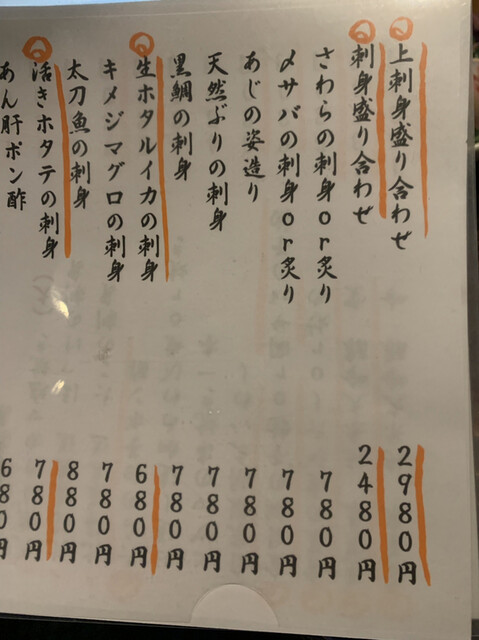 上刺身盛り合わせ 2980円
刺身盛り合わせ 2480円
さわらの刺身or炙り 780円
〆サバの刺身or炙り 780円
あじの姿造り 780円
天然ぶりの刺身 780円
黒鯛の刺身 780円
生ホタルイカの刺身 680円
キメジマグロの刺身 780円
太刀魚の刺身 880円
活きホタテの刺身 780円
あん肝ポン酢 680円